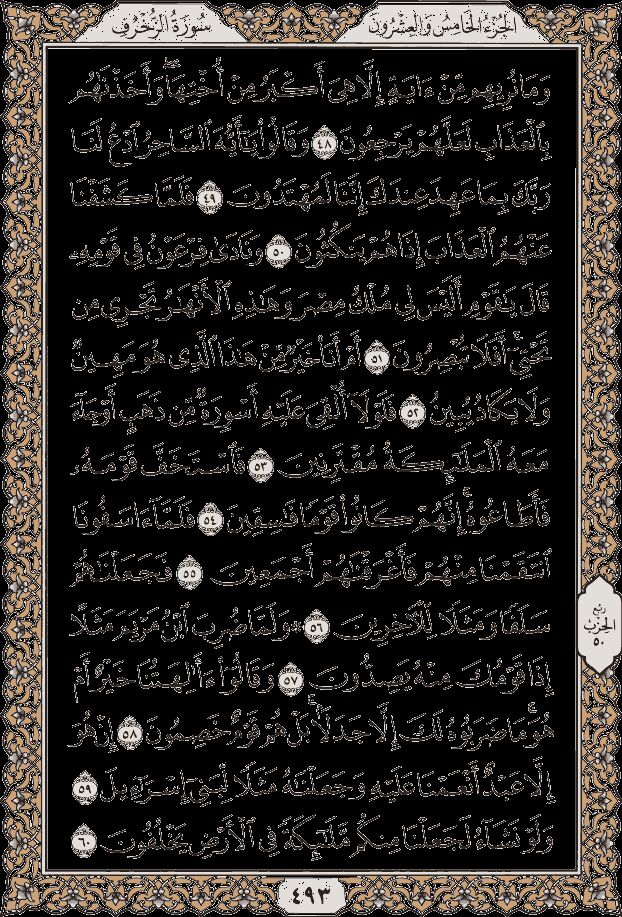 الجزء الخامس والعشرون
سورة الزخرف
وَمَا نُرِيهِم مِّنْ ءَايَةٍ إِلَّا هِيَ أَكْبَرُ مِنْ أُخْتِهَا ۖ وَأَخَذْنَٰهُم
بِٱلْعَذَابِ لَعَلَّهُمْ يَرْجِعُونَ ٤٨ وَقَالُوا۟ يَٰٓأَيُّهَ ٱلسَّاحِرُ ٱدْعُ لَنَا
رَبَّكَ بِمَا عَهِدَ عِندَكَ إِنَّنَا لَمُهْتَدُونَ ٤٩ فَلَمَّا كَشَفْنَا
عَنْهُمُ ٱلْعَذَابَ إِذَا هُمْ يَنكُثُونَ ٥٠ وَنَادَىٰ فِرْعَوْنُ فِى قَوْمِهِۦ
قَالَ يَٰقَوْمِ أَلَيْسَ لِى مُلْكُ مِصْرَ وَهَٰذِهِ ٱلْأَنْهَٰرُ تَجْرِى مِن
تَحْتِىٓ ۖ أَفَلَا تُبْصِرُونَ ٥١ أَمْ أَنَا۠ خَيْرٌ مِّنْ هَٰذَا ٱلَّذِى هُوَ مَهِينٌ
وَلَا يَكَادُ يُبِينُ ٥٢ فَلَوْلَآ أُلْقِىَ عَلَيْهِ أَسْوِرَةٌ مِّن ذَهَبٍ أَوْ جَآءَ
مَعَهُ ٱلْمَلَٰٓئِكَةُ مُقْتَرِنِينَ ٥٣ فَٱسْتَخَفَّ قَوْمَهُۥ
فَأَطَاعُوهُ ۚ إِنَّهُمْ كَانُوا۟ قَوْمًا فَٰسِقِينَ ٥٤ فَلَمَّآ ءَاسَفُونَا
ٱنتَقَمْنَا مِنْهُمْ فَأَغْرَقْنَٰهُمْ أَجْمَعِينَ ٥٥ فَجَعَلْنَٰهُمْ
سَلَفًا وَمَثَلًا لِّلْءَاخِرِينَ ٥٦ ۞ وَلَمَّا ضُرِبَ ٱبْنُ مَرْيَمَ مَثَلًا
إِذَا قَوْمُكَ مِنْهُ يَصِدُّونَ ٥٧ وَقَالُوٓا۟ ءَأَٰلِهَتُنَا خَيْرٌ أَمْ
هُوَ ۚ مَا ضَرَبُوهُ لَكَ إِلَّا جَدَلًۢا ۚ بَلْ هُمْ قَوْمٌ خَصِمُونَ ٥٨ إِنْ هُوَ
إِلَّا عَبْدٌ أَنْعَمْنَا عَلَيْهِ وَجَعَلْنَٰهُ مَثَلًا لِّبَنِىٓ إِسْرَٰٓءِيلَ ٥٩
وَلَوْ نَشَآءُ لَجَعَلْنَا مِنكُم مَّلَٰٓئِكَةً فِى ٱلْأَرْضِ يَخْلُفُونَ ٦٠
ربع
الحزب
٥٠
٤٩٣